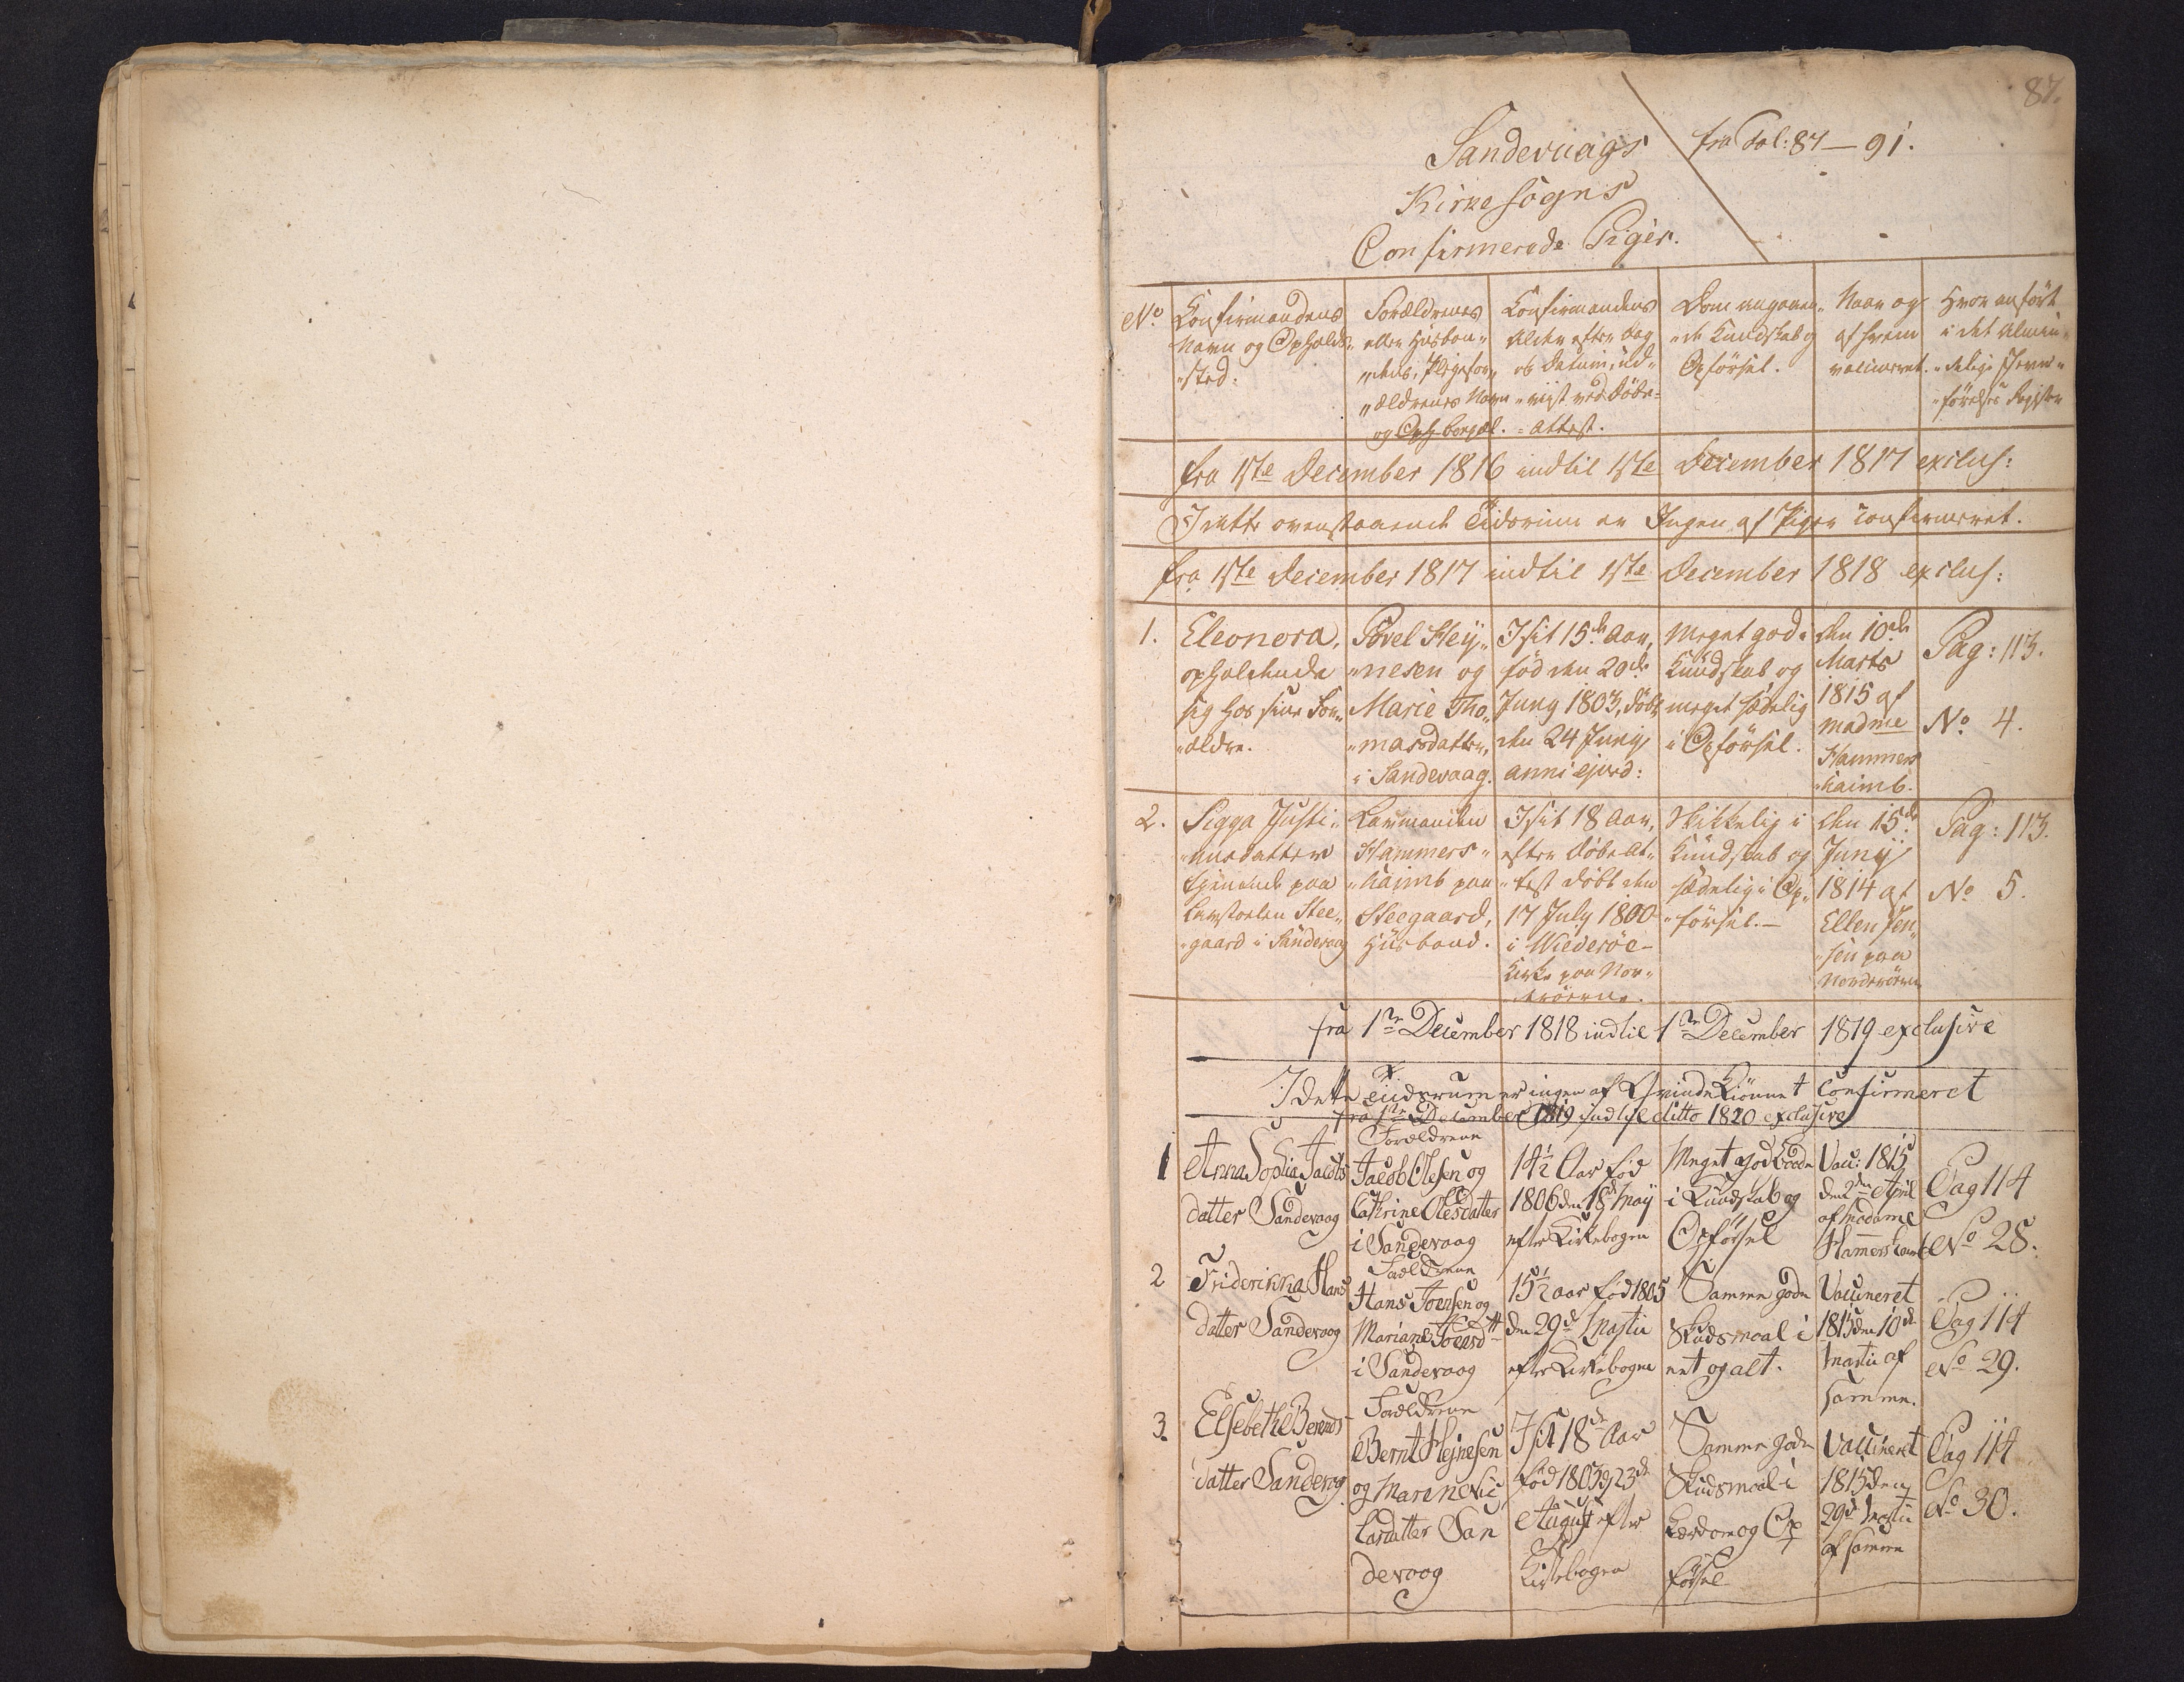 87.
Sandevaags
fra Fol: 87 — 91.
Kirkesogns
Confirmerede Piger.
No.
Confirmandens
Navn og Opholds-
"sted.
Forældrenes
eller Huusbon-
"dens, Plejefor-
"ældrenes Navn
og Opf
Confirmandens
Alder efter Dag
og Datum, ud-
"viist ved Døbe-
= Attest.
Dom angaaen-
"de Kundskab og
Opførsel.
Naar og
af hvem
vaccineret.
Hvor anført
i det Almin-
"delige Jevn-
"førelses Register
fra 1ste December 1816 indtil 1ste December 1817 exclus:
I dette ovenstaaende Tidsrum er Ingen af Piger confirmeret.
fra 1ste December 1817 indtil 1ste December 1818 exclus:
1.
Eleonora,
opholdende
sig hos sine For-
"ældre.
Povel Hey-
"nesen og
Marie Tho-
"masdatter,
i Sandevaag.
I sit 15de Aar,
fød den 20de
Juny 1803, døbt
den 24 Juny
anni ejusd:
Meget god i
Kundskab og
meget sædelig
i Opførsel.
den 10de
Marts
1815 af
Madme
Hammers
"haimb.
Pag: 113.
No. 4.
2.
Sigga Justi-
"nusdatter
tjenende paa
Stee-
"gaard i Sandevaag
Laugmanden
Hammers-
"haimb paa
Steegaard,
Huusbond.
I sit 18 Aar,
efter Døbe-At-
"test døbt den
17 July 1800
i Wiederøe-
Kirke paa Nor-
"derøerne.
Skikkelig i
Kundskab og
sædelig i Op-
"førsel. —
den 15de
Juny
1814 af
Ellen Jen-
"sen paa
Norderøerne
Pag: 113.
No 5.
fra 1ste December 1818 indtil 1ste December 1819 exclusive
I dette Tidsrum er ingen af Qvinde Kiønnet Confirmeret
fra 1ste December 1819 indtil ditto 1820 exclusive
1
Anna Sophia Jacobs
datter Sandevaag
Forældrene
Jacob Olesen og
Cathrine Olesdatter
i Sandevaag
14½ Aar fød
1806 den 18de May
efter Kirkebogen
Meget god baade
i Kundskab og
Opførsel
Vacc: 1815
den 2den April
af Madame
Hamershaimb
Pag 114
No 28.
2
Friderikka Hans
datter Sandevaag
Forældrene
Hans Joensen og
Mariane Joensdtt
i Sandevaag
15½ aar fød 1805
den 29de Martii
efter Kirkebogen
Samme gode
Skudsmaal i
eet og alt.
Vaccineret
1815 den 10de
Martii af
samme.
Pag 114
No 29.
3.
Elsebeth Berends
datter Sandevog
Forældrene
Bernt Hejnesen
og Maren Nic
lasdatter San
devaag
I sit 18de Aar
fød 1803 d 23de
August efter
Kirkebogen
Samme gode
Skudsmaal i
Lærdom og Op
førsel
Vaccineret
1815 den
29de Martii
af samme
Pag 114
No 30.